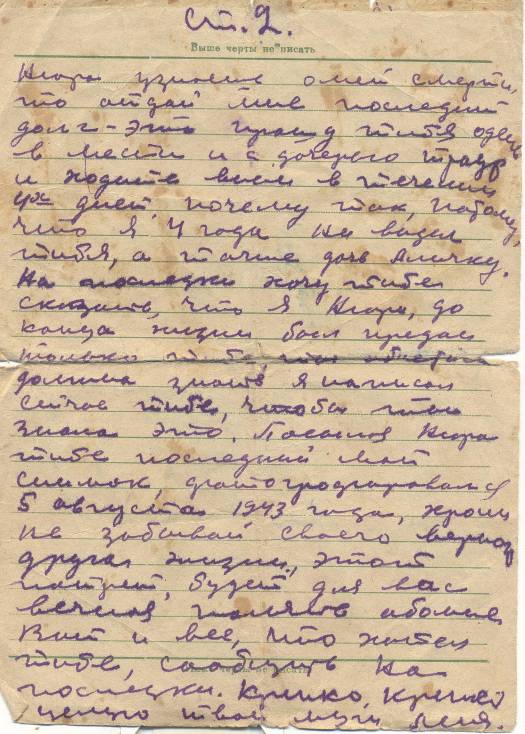 Ст. 2.
Выше черты не писать
Нюра узнаешь о моей смерти,
то отдай мне последний
долг – это траур тебя одень
в месте и с дочерью траур
и ходить всем в течении
4х дней, почему так, потому,
что я 4 года не видел
тебя, а также дочь Аличку.
На последки хочу тебе
сказать, что я Нюра, до
конца жизни был предан
только тебе
должна знать, я написал
сейчас тебе, чтобы ты
знала это. Посылаю Нюра
тебе последний мой
снимок, фотографировался
5 августа 1943 года, храни
не забывай своего верного
друга жизни, этот
портрет, будет для вас
вечная память обо мне
Вот и все, что хотел
тебе, сообщить на
последки. Крепко, крепко
целую твой муж Леня.